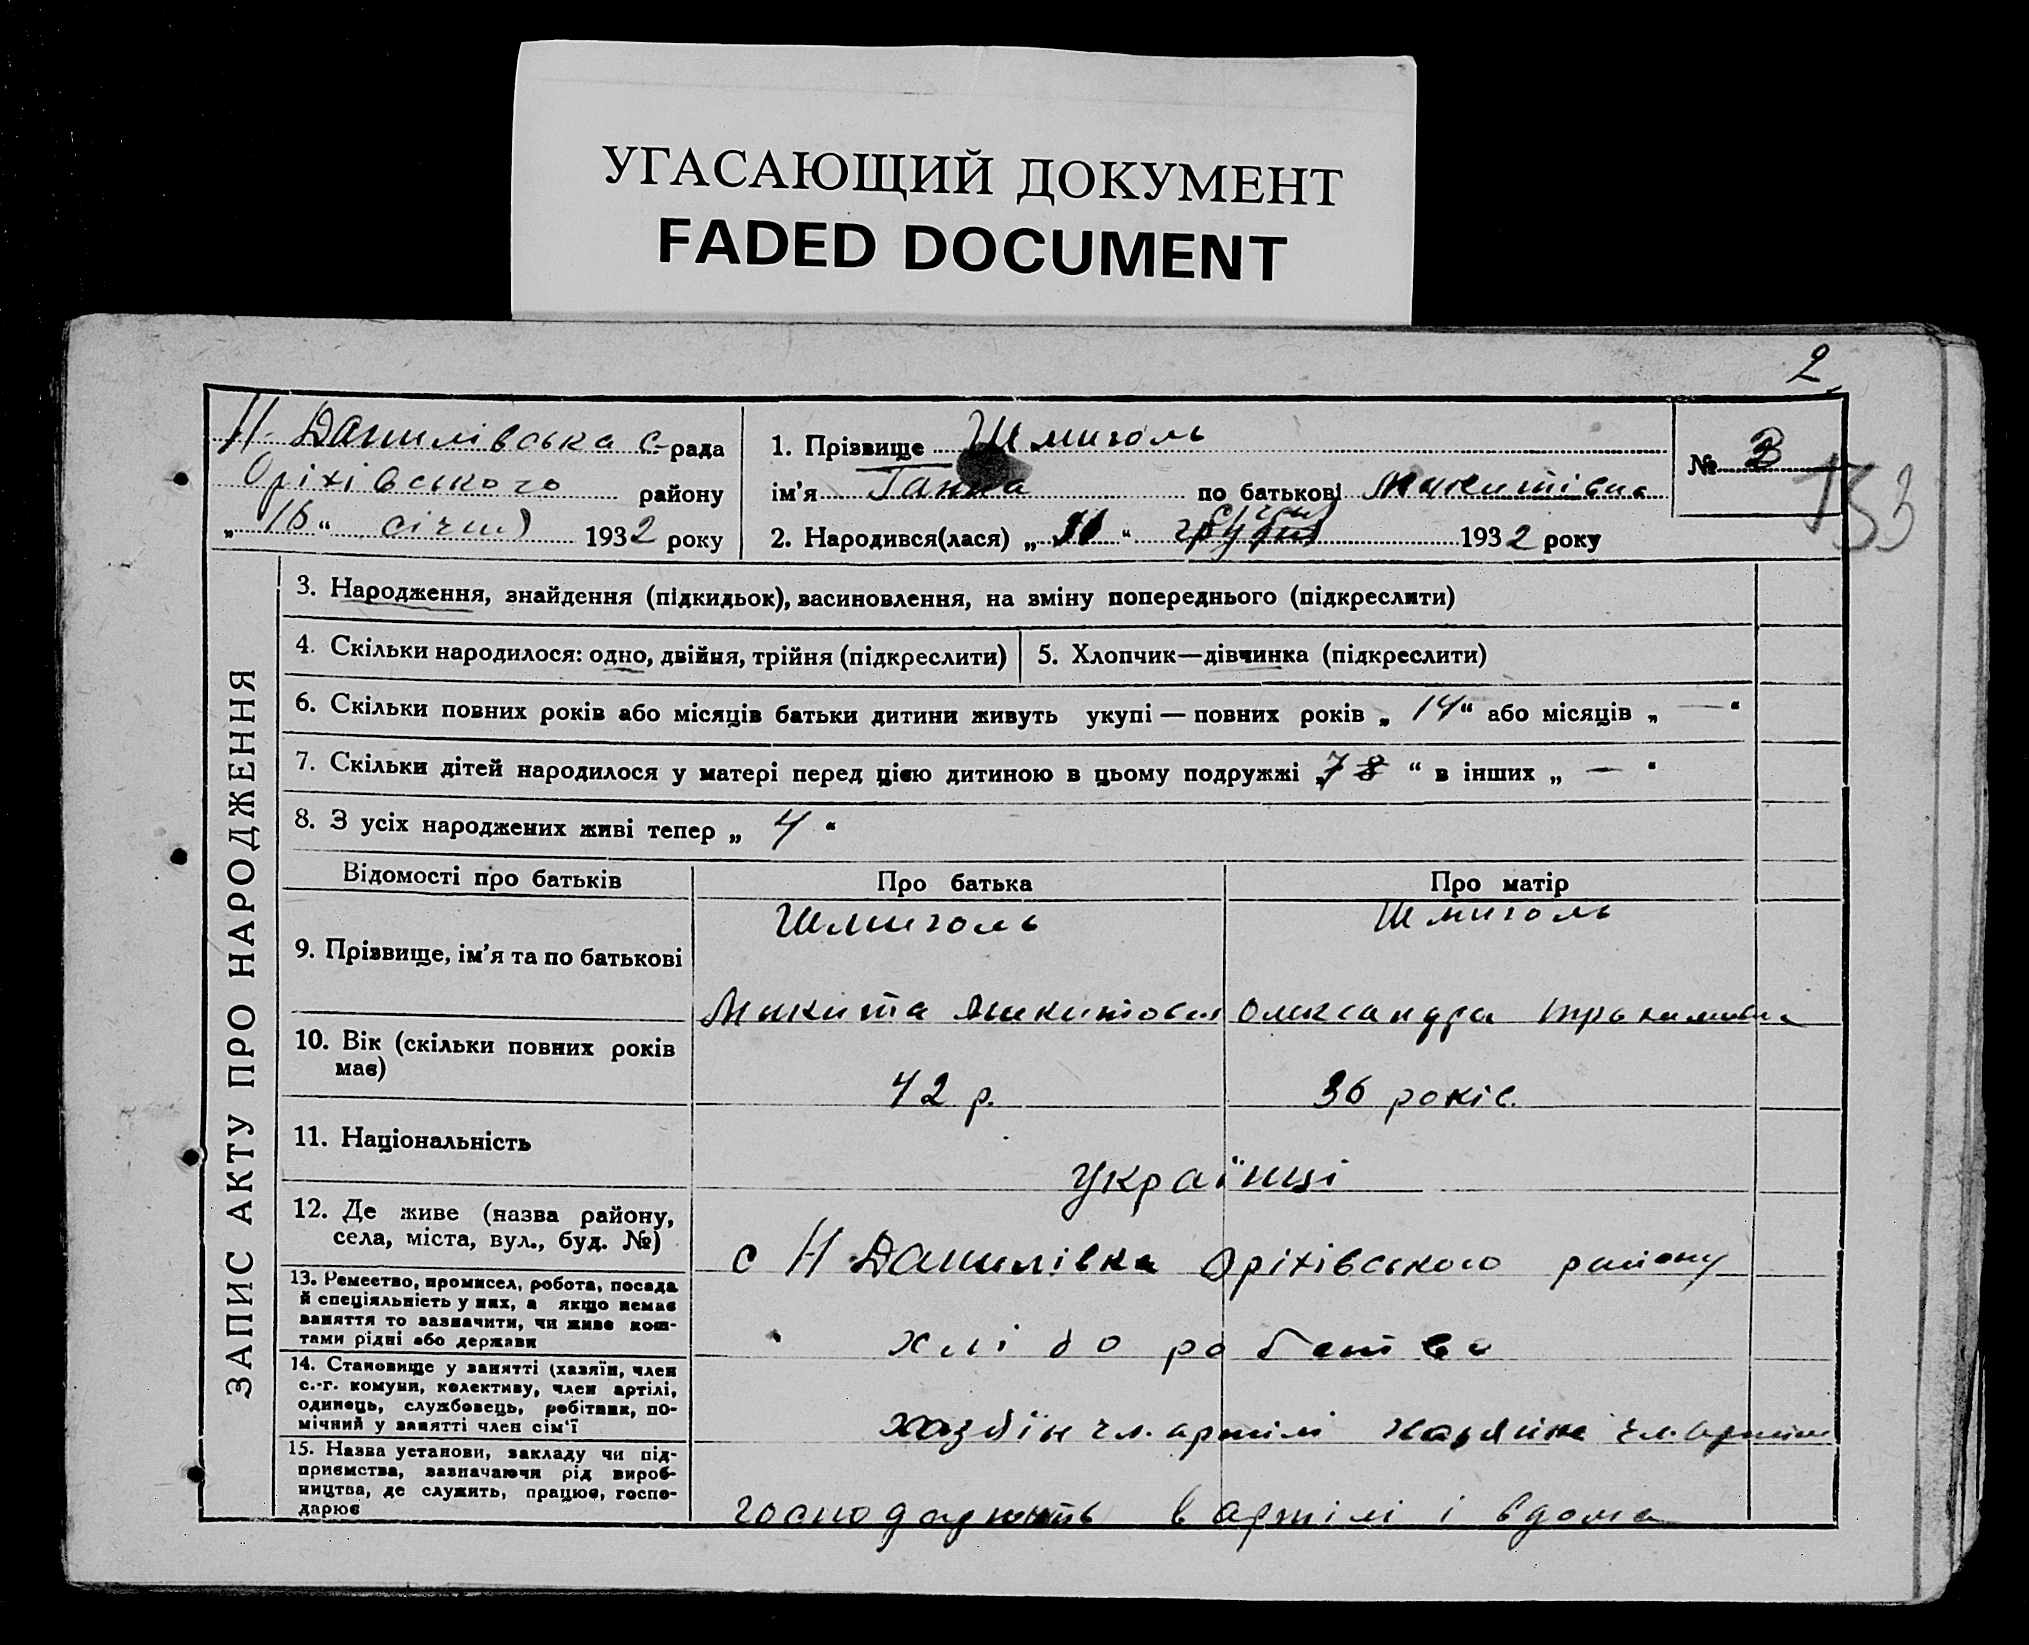 УГАСАЮЩИЙ ДОКУМЕНТ
FADED DOCUMENT
2
Н. Данилівська с. рада
Оріхівського району
„16“ січня 1932 року
1. Прізвище Шмиголь
ім'я Ганна по батькові Микитівна
січня
2. Народився(лася) „11“ грудня 1932 року
№ 3
133
ЗАПИС АКТУ ПРО НАРОДЖЕННЯ
3. Народження, знайдення (підкидьок), васиновлення, на зміну попереднього (підкреслити)
4. Скільки народилося: одно, двійня, трійня (підкреслити)
5. Хлопчик—дівчинка (підкреслити)
6. Скільки повних років або місяців батьки дитини живуть укупі — повних років „14“ або місяців „—“
7. Скільки дітей народилося у матері перед цією дитиною в цьому подружжі „7 8“ в інших „—“
8. З усіх народжених живі тепер „4“
Відомості про батьків
Про батька
Про матір
9. Прізвище, ім'я та по батькові
Шмиголь
Микита Микитович
Шмиголь
Олександра
10. Вік (скільки повних років
має)
42 р.
36 років
11. Національність
Українці
12. Де живе (назва району,
села, міста, вул., буд. №)
с Н Данилівка Оріхівського району
13. Ремество, промисел, робота, посада
й спеціяльність у них, а якщо немає
заняття то зазначити, чи живе кош-
тами рідні або держави
хліборобство
14. Становище у занятті (хазяїн, член
с.-г. комуни, колективу, член артілі,
одинець, службовець, робітник, по-
мічний у занятті член сім'ї
хазяїн чл. артілі хазяйка чл. артілі
15. Назва установи, закладу чи під-
приємства, зазначаючи рід вироб-
ництва, де служить, працює, госпо-
дарює
господарюють в артілі і вдома